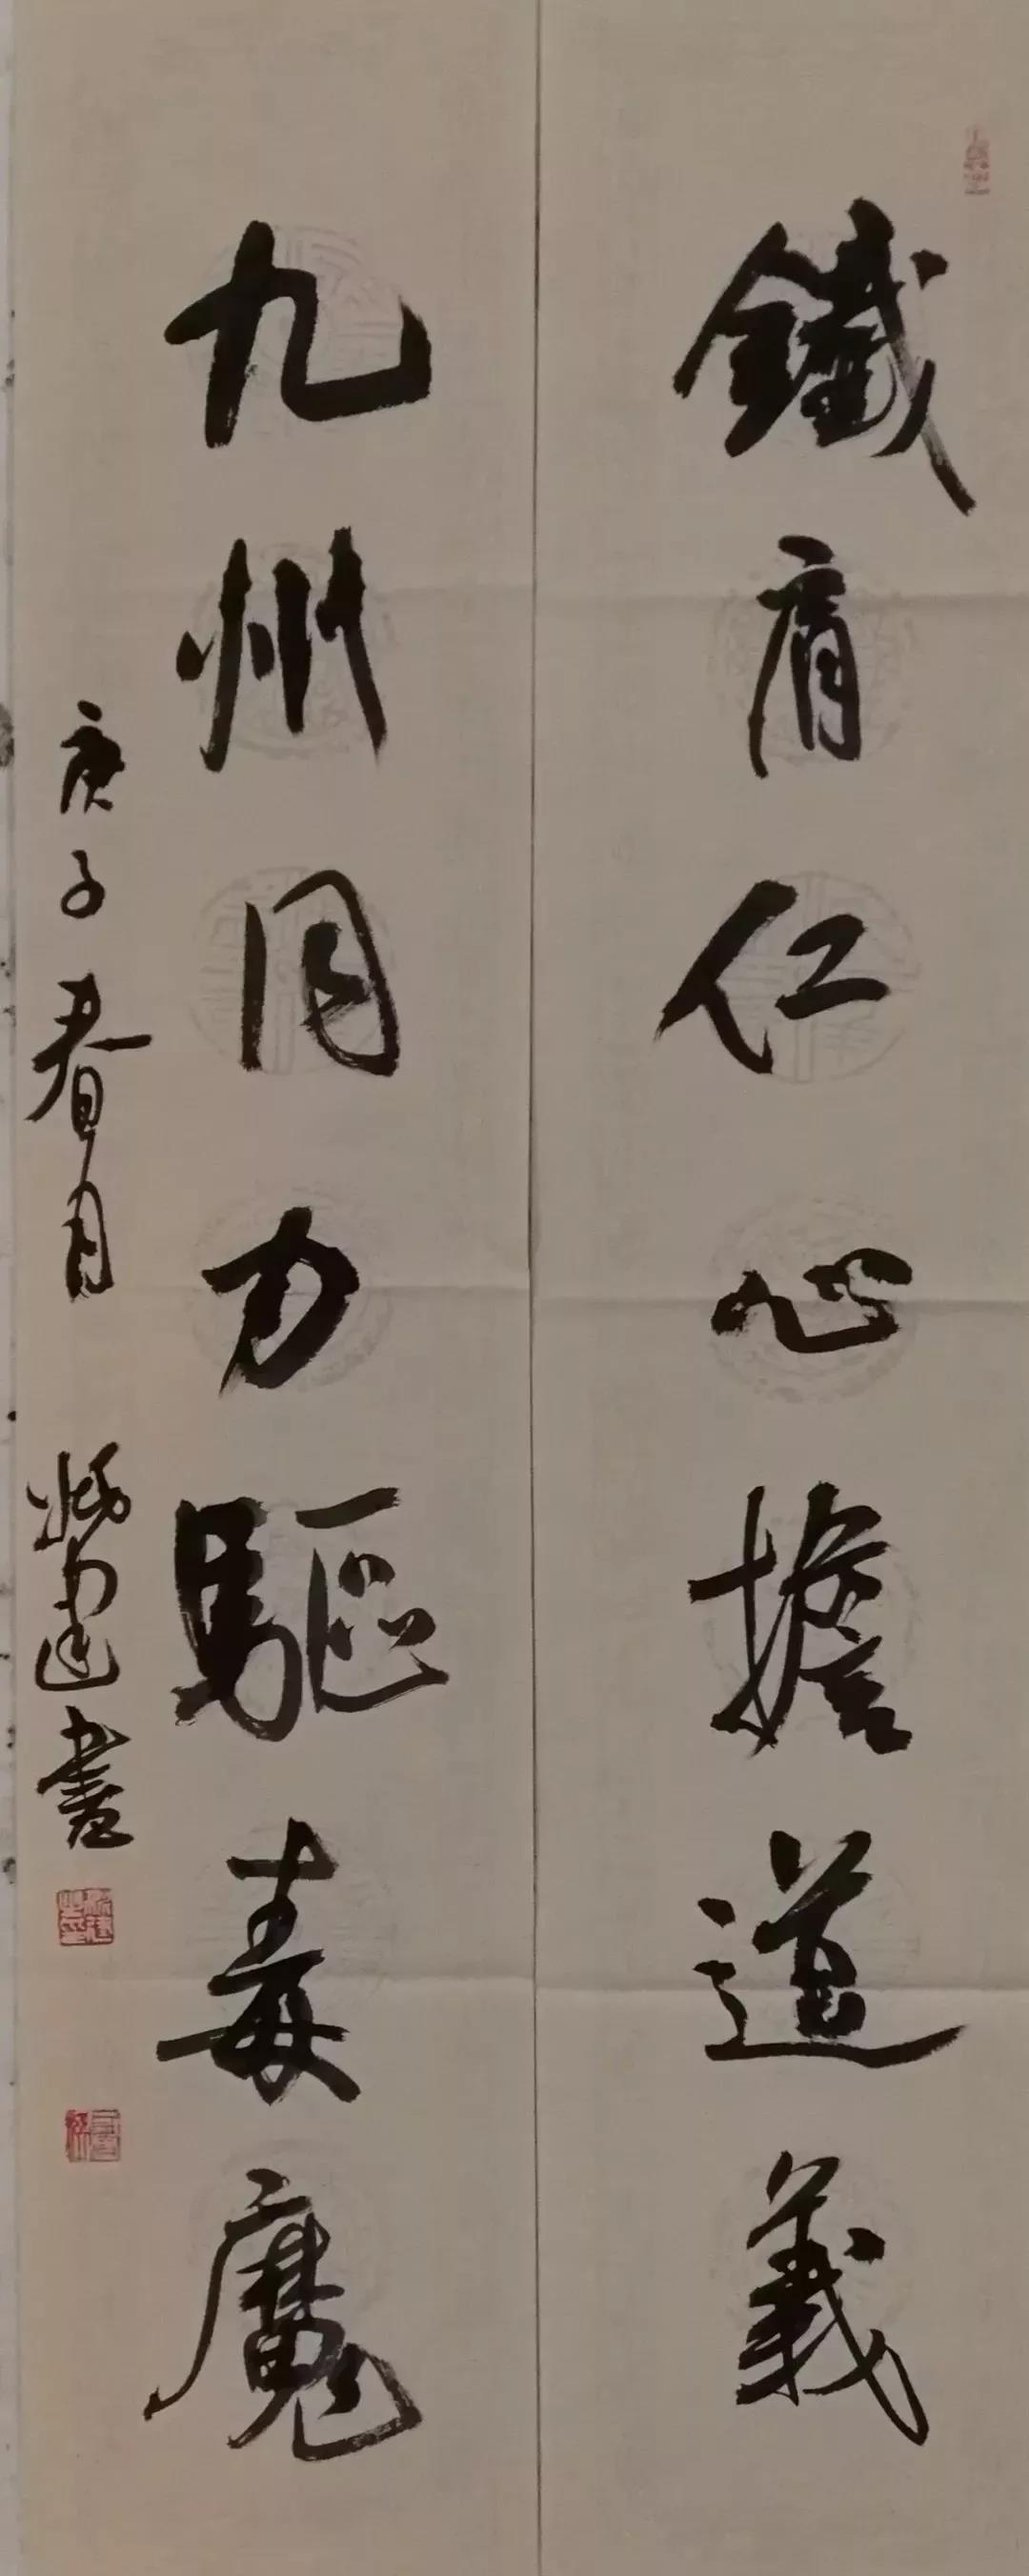 鐵肩仁心擔道義
九州同力驅毒魔
庚子春月 建書